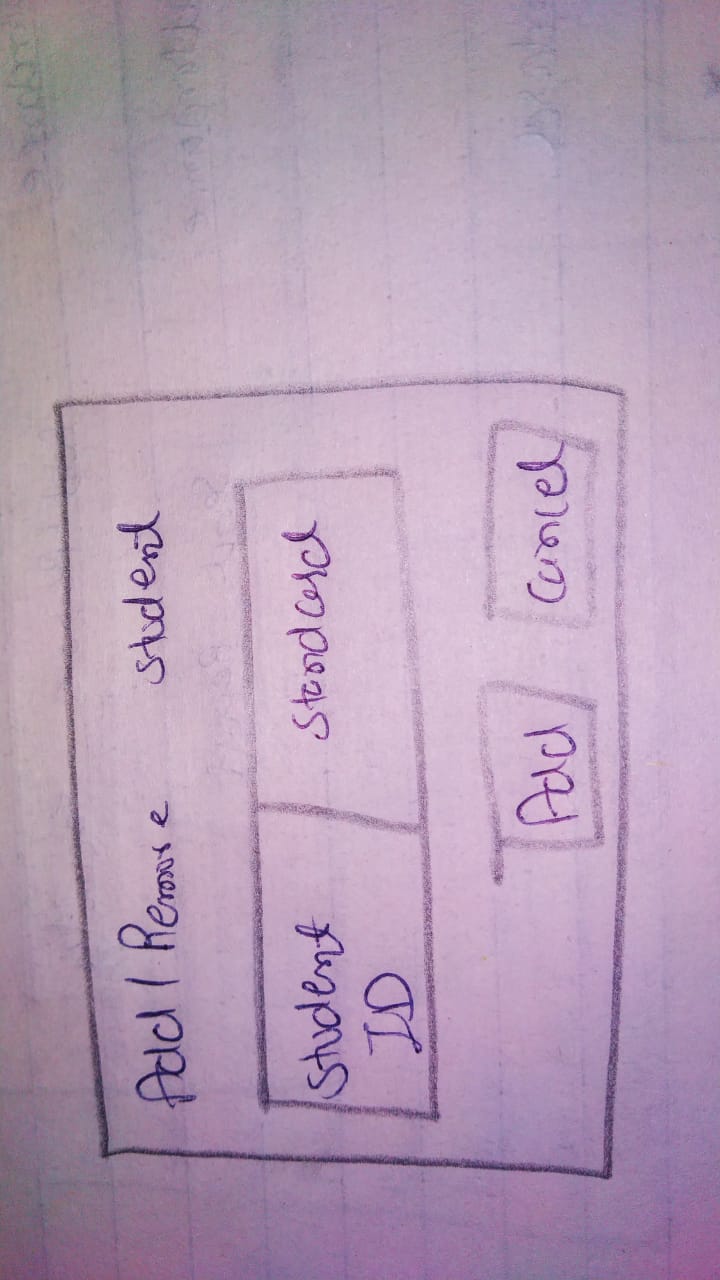 Add / Remove student
Student ID
Standard
Add
Cancel